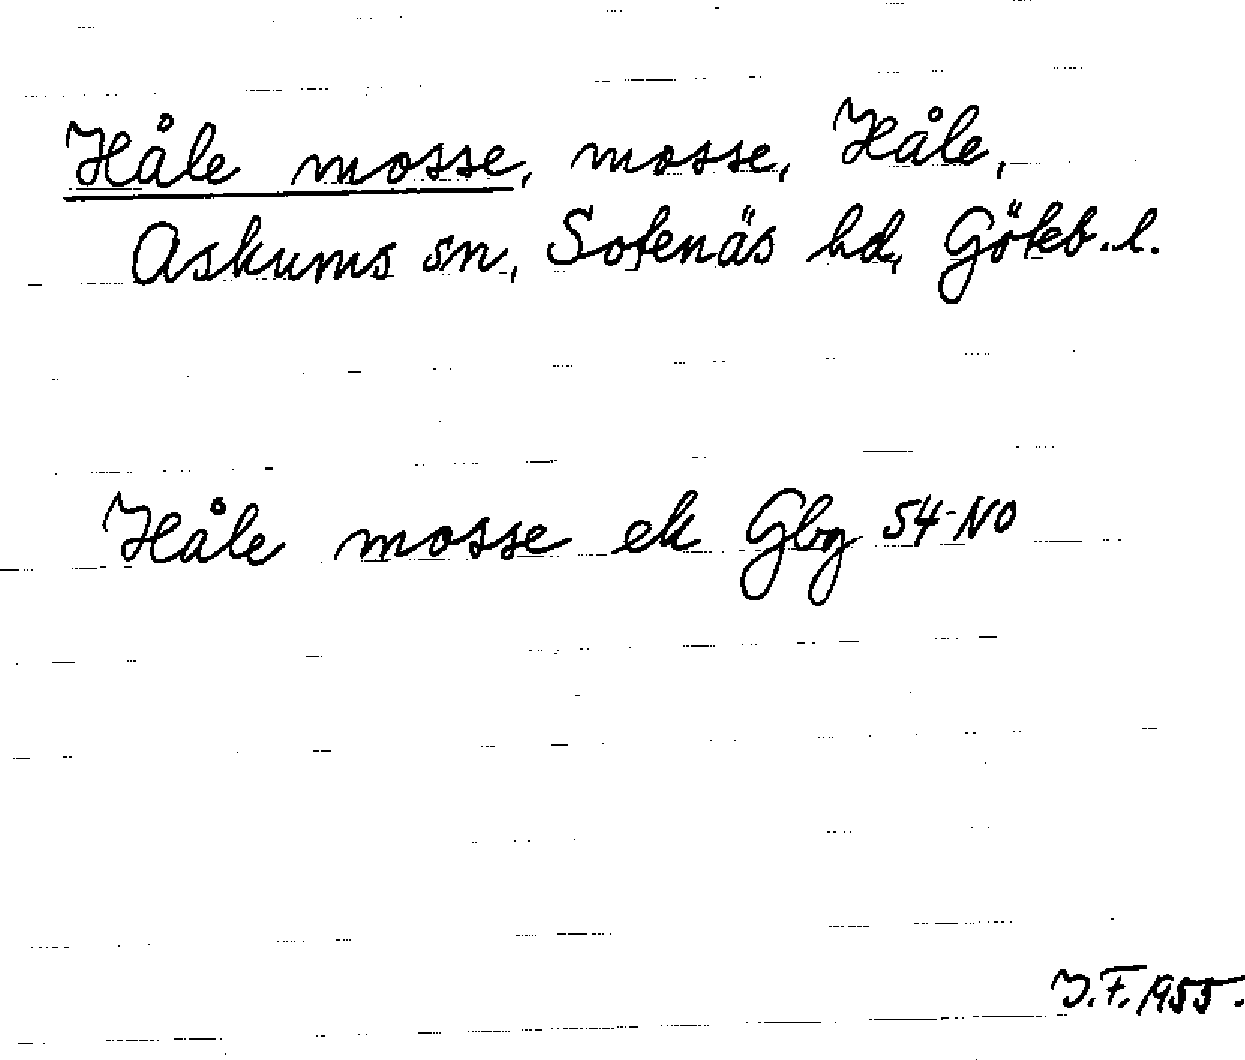 Håle mosse, mosse, Håle,
Askums sn, Sotenäs hd, Göteb. l.
Håle mosse ek Gbg 54-NO
J.F. 1955.